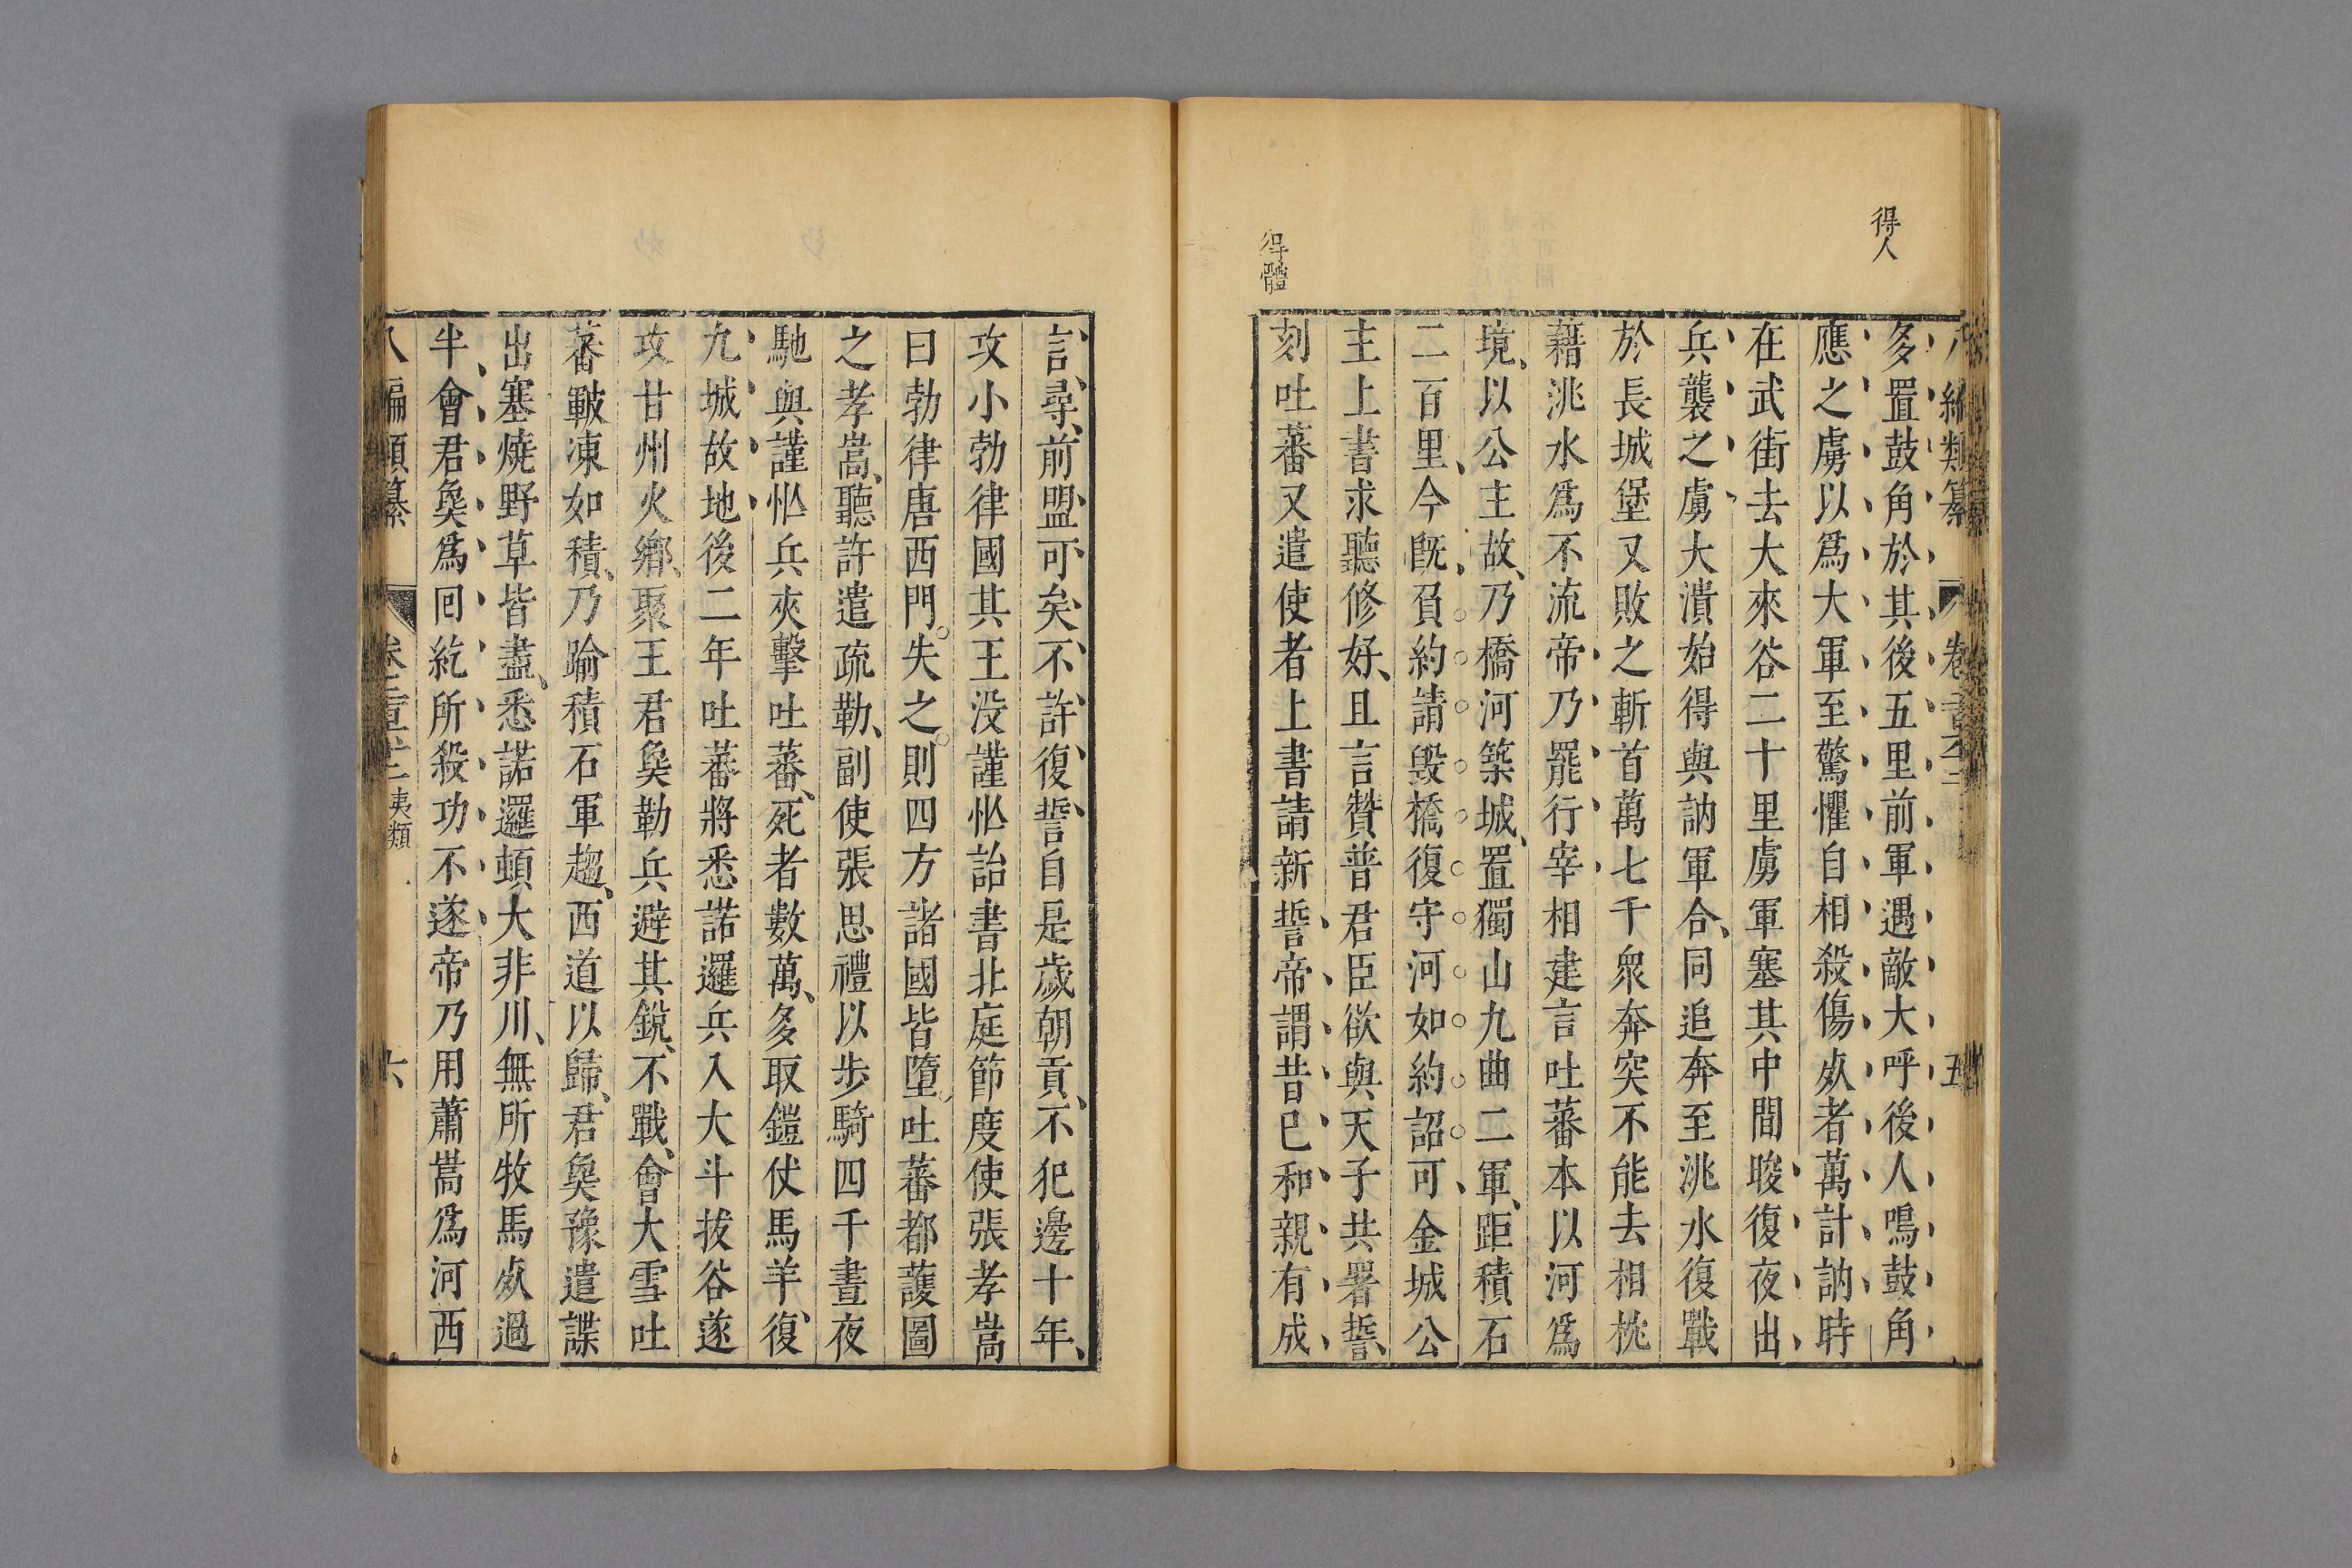 得人
多置鼓角於其後五里前軍遇敵大呼後人鳴鼓角
應之虜以爲大軍至驚懼自相殺傷死者萬計訥時
在武街去大來谷二十里虜軍塞其中間晙復夜出
兵襲之虜大潰始得與訥軍合同追奔至洮水復戰
於長城堡又敗之斬首萬七千衆奔突不能去相枕
藉洮水爲不流帝乃罷行宰相建言吐蕃本以河爲
境以公主故乃橋河築城置獨山九曲二軍距積石
二百里今旣負約請毀橋復守河如約詔可金城公
主上書求聽修好且言贊普君臣欲與天子共署誓
得體
刻吐蕃又遣使者上書請新誓帝謂昔已和親有成
言尋前盟可矣不許復誓自是歲朝貢不犯邊十年
攻小勃律國其王没謹忙詒書北庭節度使張孝嵩
曰勃律唐西門失之則四方諸國皆墮吐蕃都護圖
之孝嵩聽許遣疏勒副使張思禮以步騎四千晝夜
馳與謹忙兵夾擊吐蕃死者數萬多取鎧仗馬羊復
九城故地後二年吐蕃將悉諾邏兵入大斗拔谷遂
攻甘州火鄉聚王君㚟勒兵避其銳不戰會大雪吐
蕃皸凍如積乃踰積石軍趨西道以歸君㚟豫遣諜
出塞燒野草皆盡悉諾邏頓大非川無所牧馬死過
半會君㚟爲回紇所殺功不遂帝乃用蕭嵩爲河西
八編類纂
夷類
六